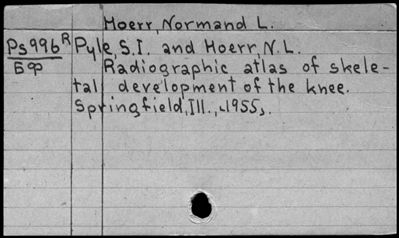 Hoerr, Normand L.
Ps996R Pyle, S.I. and Hoerr, N.L.
БФ Radiographic atlas of skele-
tal development of the knee.
Springfield, Ill., 1955.